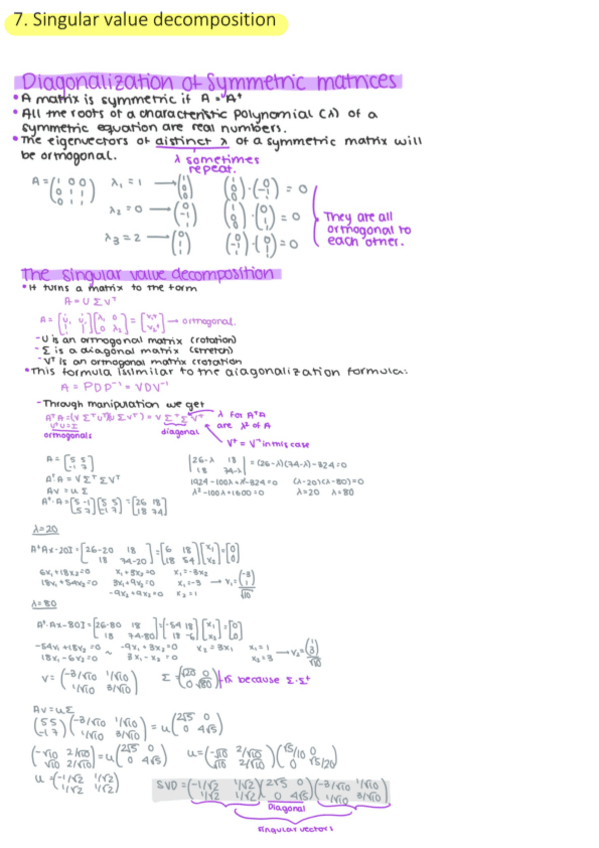 7. Singular value decomposition
Diagonalization of symmetric matrices
• A matrix is symmetric if A = Aᵗ
• All the roots of a characteristic polynomial (λ) of a
symmetric equation are real numbers.
• The eigenvectors of distinct λ of a symmetric matrix will
be orthogonal.
λ sometimes
repeat.
A = (1 0 0; 0 1 1; 0 1 1) λ₁ = 1 → (1 0 0) (1 0 0) · (0 -1 1) = 0
λ₂ = 0 → (0 -1 1) (1 0 0) · (0 1 1) = 0
λ₃ = 2 → (0 1 1) (0 -1 1) · (0 1 1) = 0
They are all
orthogonal to
each other.
The singular value decomposition
• It turns a matrix to the form
A = U Σ Vᵀ
→ orthogonal.
- U is an orthogonal matrix (rotation)
- Σ is a diagonal matrix (stretch)
- Vᵀ is an orthogonal matrix (rotation
• This formula is similar to the diagonalization formula:
A = PDP⁻¹ = VDV⁻¹
- Through manipulation we get
AᵗA = (V Σᵀ Uᵀ)(U Σ Vᵀ) = V Σᵀ Σ Vᵀ
λ for AᵗA
are λ² of A
UᵗU = I
orthogonals
diagonal
Vᵗ = V⁻ in this case
A = [5 5; -1 7]
|26-λ 18; 18 74-λ| = (26-λ)(74-λ) - 324 = 0
AᵗA = V Σᵀ Σ Vᵀ
1924 - 100λ + λ² - 324 = 0 (λ-20)(λ-80) = 0
AV = U Σ
λ² - 100λ + 1600 = 0 λ = 20 λ = 80
Aᵗ·A = [5 -1; 5 7][5 5; -1 7] = [26 18; 18 74]
λ=20
AᵗAx - 20I = [26-20 18; 18 74-20] = [6 18; 18 54][x₁; x₂] = [0; 0]
6x₁ + 18x₂ = 0 x₁ + 3x₂ = 0 x₁ = -3x₂
18x₁ + 54x₂ = 0 3x₁ + 9x₂ = 0 x₁ = -3 → v₁ = (-3; 1)/√10
-9x₂ + 9x₂ = 0 x₂ = 1
λ=80
Aᵗ·Ax - 80I = [26-80 18; 18 74-80] = [-54 18; 18 -6][x₁; x₂] = [0; 0]
-54x₁ + 18x₂ = 0 ~ -9x₁ + 3x₂ = 0 x₂ = 3x₁ x₁ = 1 → v₂ = (1; 3)/√10
18x₁ - 6x₂ = 0 3x₁ - x₂ = 0 x₂ = 3
V = (-3/√10 1/√10; 1/√10 3/√10) Σ = (√20 0; 0 √80) √λ because Σ·Σᵗ
AV = UΣ
(5 5; -1 7)(-3/√10 1/√10; 1/√10 3/√10) = U(2√5 0; 0 4√5)
U = (-1/√2 1/√2; 1/√2 1/√2)
SVD = (-1/√2 1/√2; 1/√2 1/√2)(2√5 0; 0 4√5)(-3/√10 1/√10; 1/√10 3/√10)
Diagonal
singular vectors